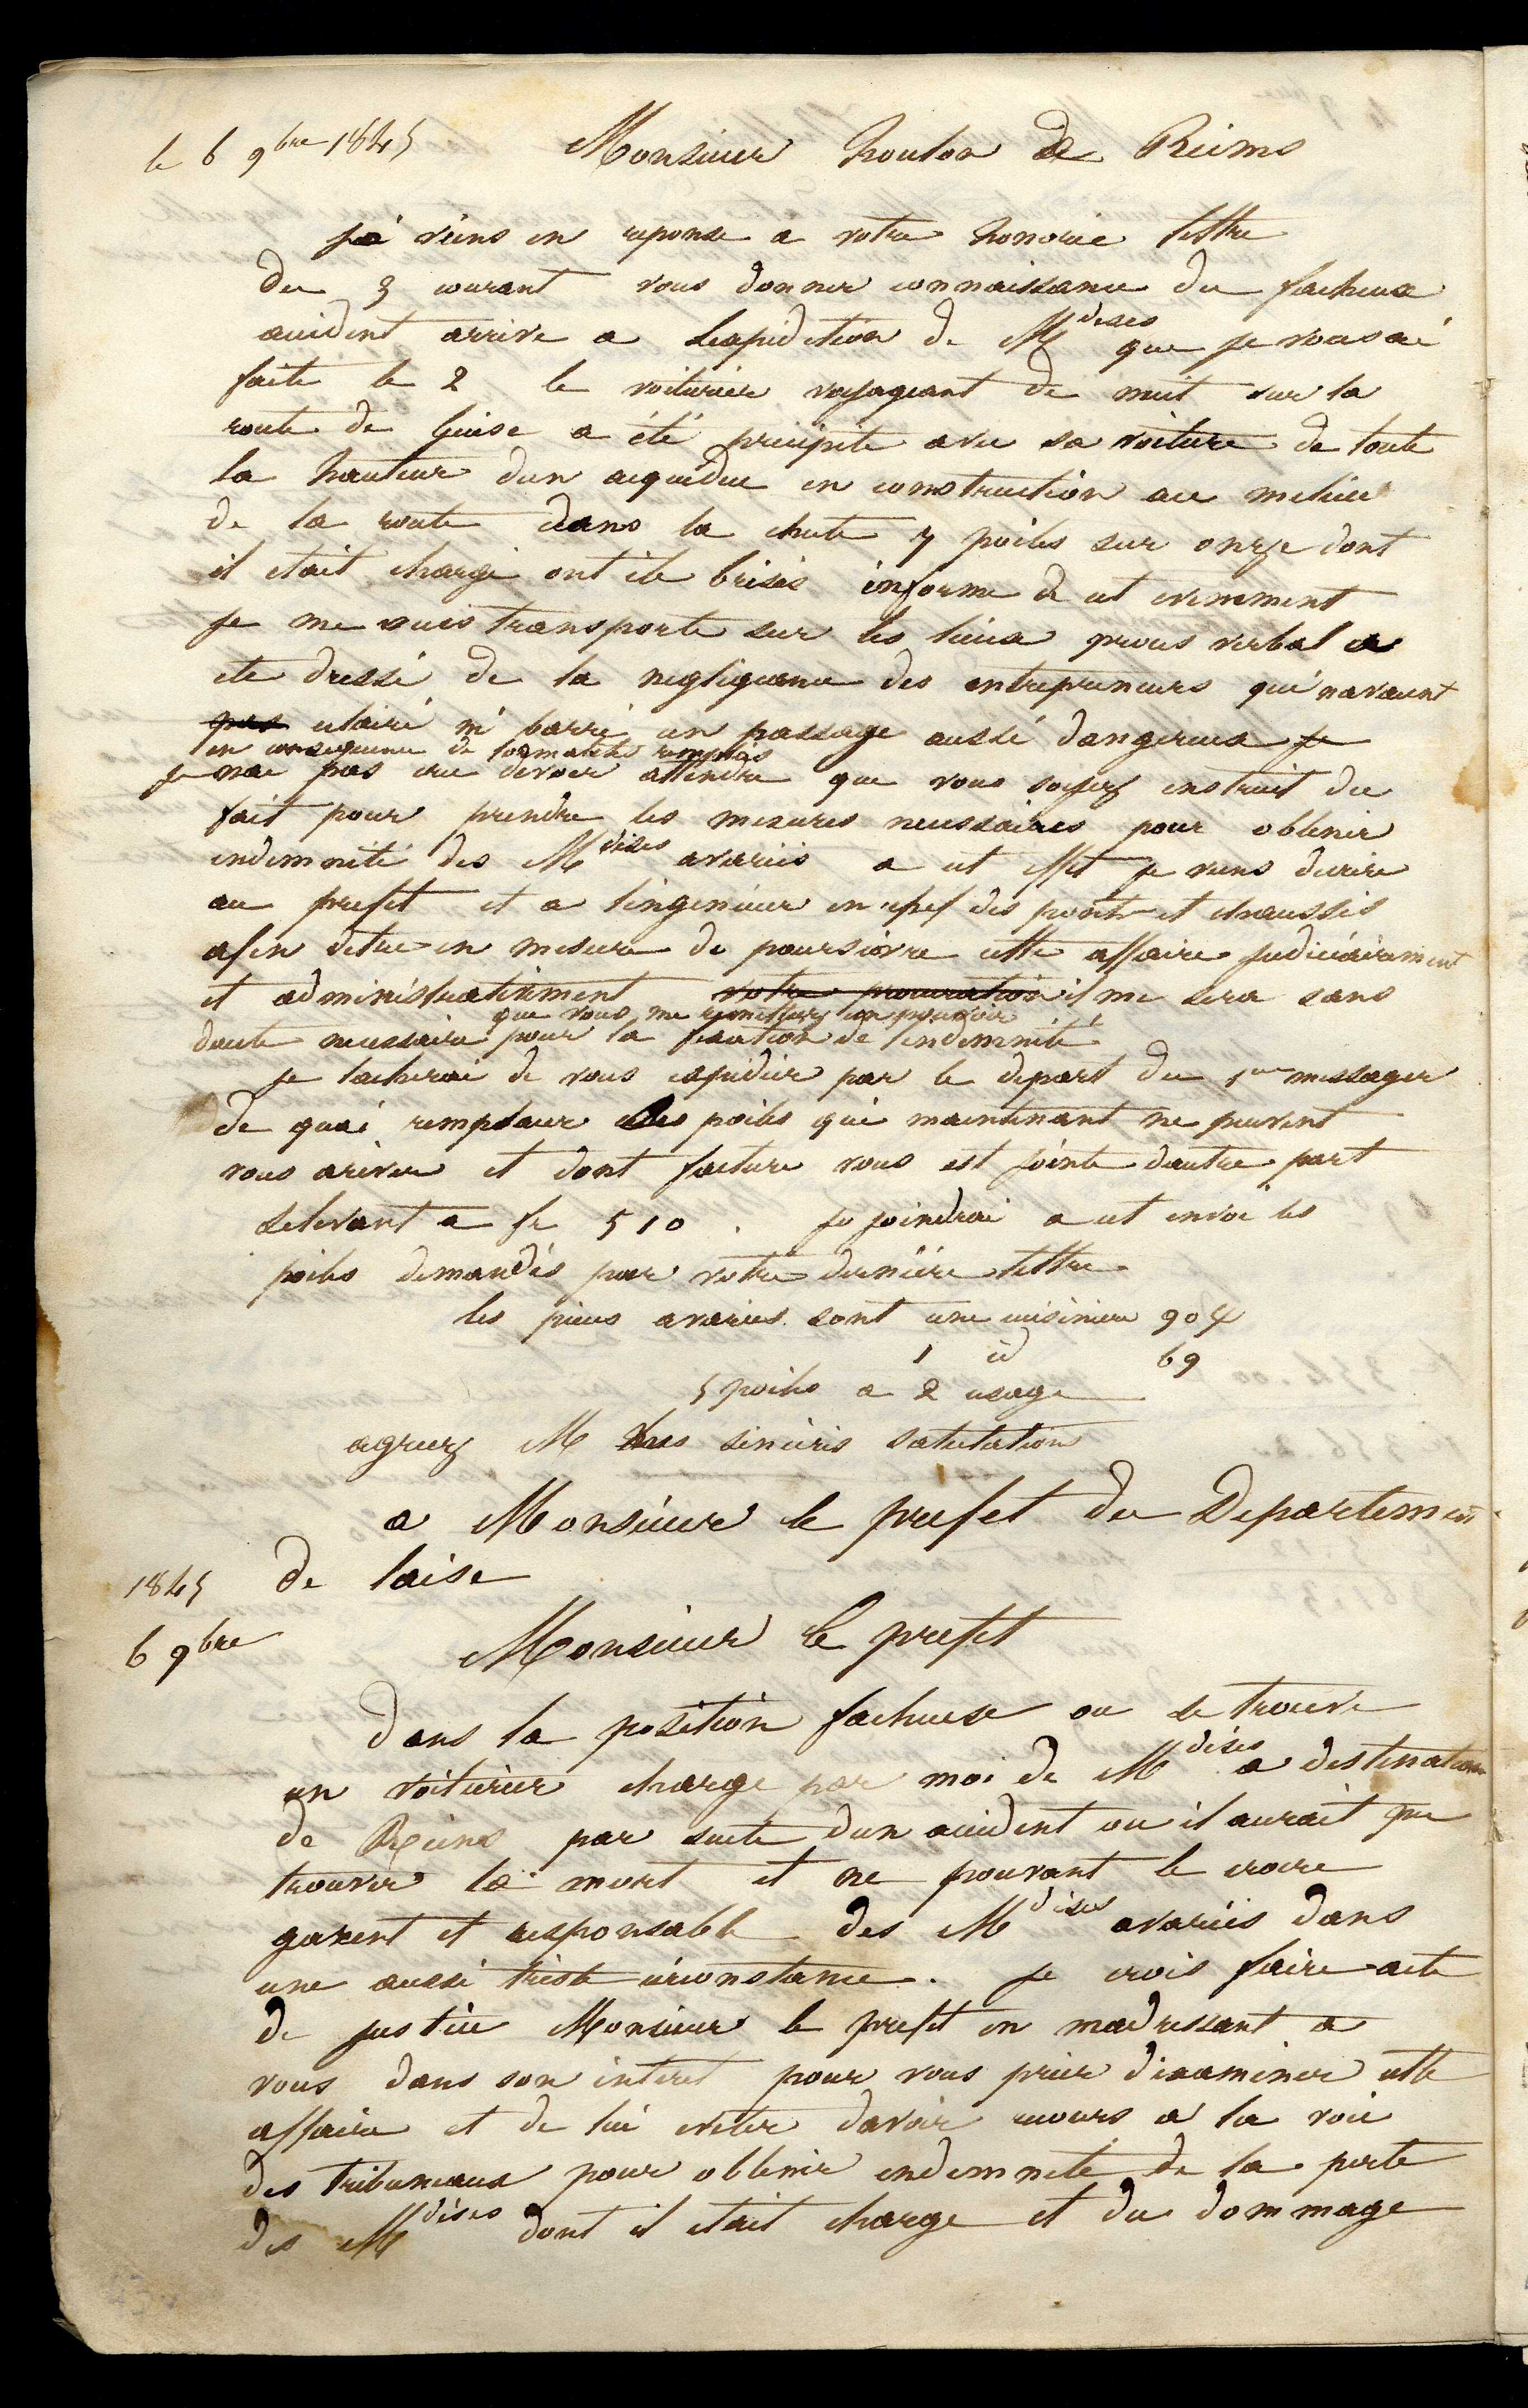 le 6 9bre 1845 Monsieur houlon de Reims
je viens en reponse a votre honorée lettre
du 3 courant vous donner connaissance du facheux
accident arrive a lexpedition de Mdises que je vous ai
faite le 2 le voiturier voyageant de nuit sur la
route de Guise a été precipite avec sa voiture de toute
la hauteur dun aqueduc en construction au milieu
de la route dans la chute 7 poiles sur onze dont
il etait chargé ont ete brisés informe de cet evennement
je me suis transporte sur les lieux proces verbal a
ete dressé de la negligeance des entrepreneurs qui navaient
pas eclairé ni barré un passage aussi dangereux je
en consequence de formalités remplies
je nai pas cru devoir attendre que vous soyez instruit du
fait pour prendre les mesures necessaires pour obtenir
indemnité des Mdises avariés a cet effet je viens decrire
au prefet et a lingenieur en chef des ponts et chaussés
afin detre en mesure de poursuivre cette affaire judiciairement
et administrativement votre procuration il me sera sans
que vous me remettiez un pouvoir
doute necessaire pour la fixation de lindemnité
je tacherai de vous expedier par le depart du 1er messager
de quoi remplacer les poiles qui maintenant ne peuvent
vous ariver et dont facture vous est jointe dautre part
selevant a fr 510 . je joindrai a cet envoi les
poiles demandés par votre derniere lettre
les pieces avariés sont une cuisiniere 904
1 id 69
5 poiles a 2 usage
agreez M mes sinceres salutation
a Monsieur le prefet du Departement
1845 de laisne
6 9bre Monsieur le prefet
dans la position facheuse ou se trouve
un voiturier charge par moi de Mdises a destination
de Reims par suite dun accident ou il aurait pu
trouver la mort et ne pouvant le croire
garent et responsable des Mdises avariés dans
une aussi triste circonstance. je crois faire acte
de justice Monsieur le prefet en madressant a
vous dans son interet pour vous prier dexaminer cette
affaire et de lui eviter davoir recours a la voie
des tribuneaux pour obtenir indemnité de la perte
des Mdises dont il etait charge et du dommage